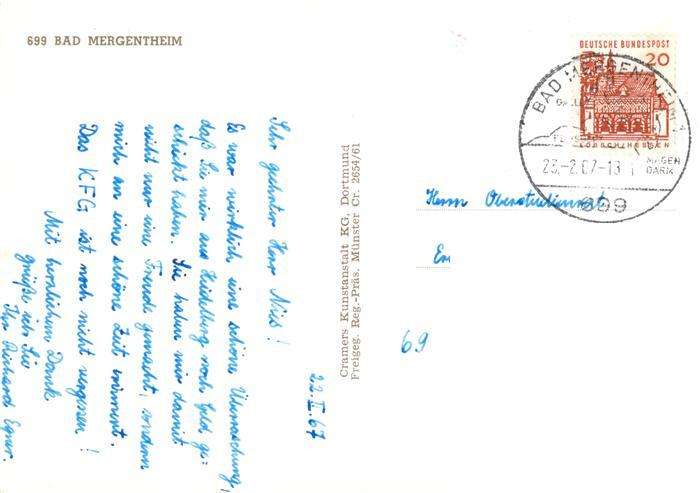 699 BAD MERGENTHEIM
Sehr geehrter Herr Nies!
Es war wirklich eine schöne Überraschung,
daß Sie mir aus Heidelberg noch Geld ge=
schickt haben. Sie haben mir damit
nicht nur eine Freude gemacht, sondern
mich an eine schöne Zeit erinnert.
Das KFG ist noch nicht vergessen!
Mit herzlichem Dank
grüße ich Sie
Ihr Richard
22.II.67
Cramers Kunstanstalt KG, Dortmund
Freigeg. Reg.-Präs. Münster Cr. 2654/61
DEUTSCHE BUNDESPOST
20
BAD MERGENTHEIM
23.-2.67-13
MAGEN
DARM
699
Herrn Oberstudienrat
69